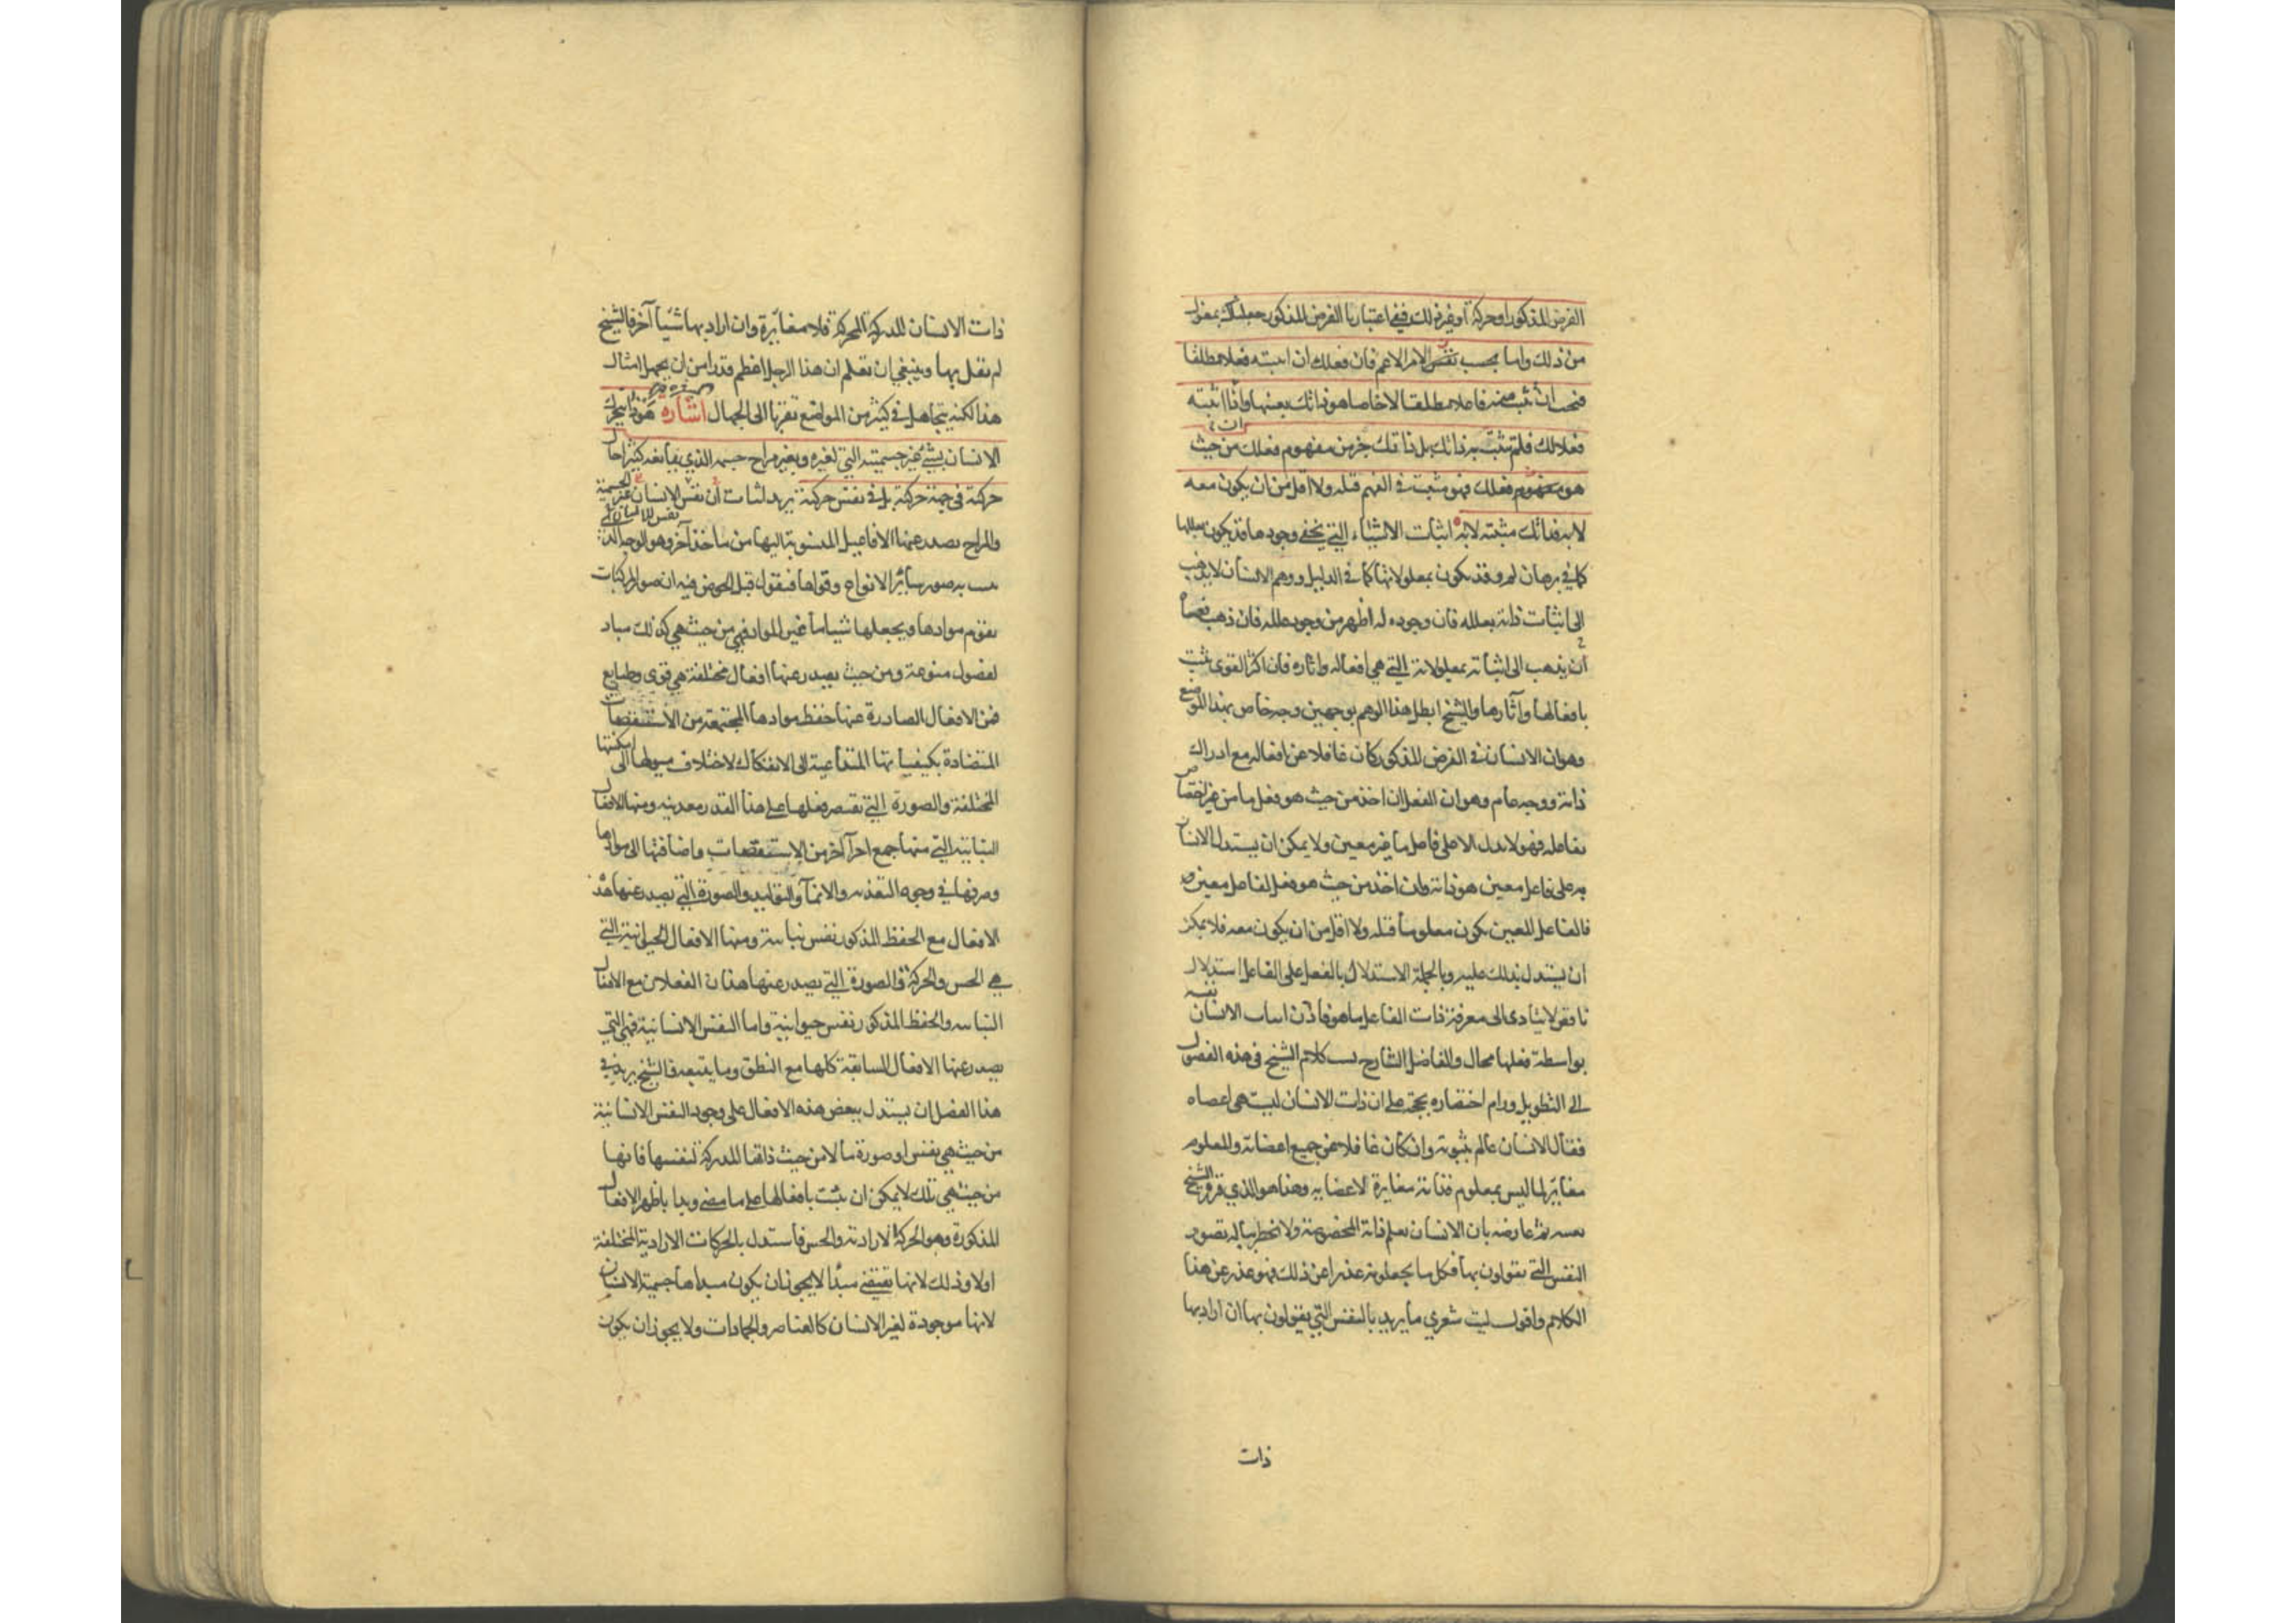 الفرض المذكور او حركة او غير ذلك ففى اعتبارنا الفرض المذكور جعلناك بمعزل
من ذلك واما بحسب نفس الامر الاعم فان فعلك ان اثبته فعلا مطلقا
فيجب ان تثبت منه فاعلا مطلقا لا خاصا هو ذاتك بعينها وان اثبته
فعلا لك فلم تثبت به ذاتك بل ذاتك جزء من مفهوم فعلك من حيث
هو مفهوم فعلك فهو مثبت فى الفهم قبله ولا اقل من ان يكون معه
لا به فذاتك مثبتة لا به اثبات الاشياء التي يخفى وجودها قد يكون بعللها
كما في برهان لم وقد يكون بمعلولاتها كما في الدليل ووهم الانسان لا يذهب
الى اثبات ذاته بعلله فان وجوده له اظهر من وجود علله فان ذهب فعسا
ان يذهب الى اثباته بمعلولاته التي هي افعاله واثاره فان اكثر القوى تثبت
بافعالها وآثارها والشيخ ابطل هذا الوهم بوجهين وجه خاص بهذا الموضع
وهو ان الانسان في الفرض المذكور كان غافلا عن افعاله مع ادراك
ذاته ووجه عام وهو ان الفعل ان اخذ من حيث هو فعل ما من غير اختصاص
بفاعله فهو لا يدل الا على فاعل ما غير معين ولا يمكن ان يستدل الانسان
به على فاعل معين هو ذاته وان اخذ من حيث هو فعل لفاعل معين
فالفاعل المعين يكون معلوما قبله ولا اقل من ان يكون معه فلا يمكن
ان يستدل بذلك عليه وبالجملة الاستدلال بالفعل على الفاعل استدلال
ناقص لا يتادى الى معرفة ذات الفاعل ما هو فاذن اثبات الانسان نفسه
بواسطة فعلها محال والفاضل الشارح نسب كلام الشيخ في هذه الفصول
الى التطويل ورام اختصاره بحجة على ان ذات الانسان ليست هي اعضاه
فقال الانسان عالم بثبوته وان كان غافلا عن جميع اعضائه والمعلوم
مغاير لما ليس بمعلوم فذاته مغايرة لاعضايه وهذا هو الذي قرره الشيخ
بعينه ثم عارضه بان الانسان يعلم ذاته المخصوصة ولا يخطر بباله تصور
النفس التي يقولون بها فكل ما يجعلونه عذرا عن ذلك فهو عذر عن هذا
الكلام واقول ليت شعري ما يريد بالنفس التي يقولون بها ان اراد بها
ذات
ذات الانسان المدركة المحركة فلا مغايرة وان اراد بها شيئا آخر فالشيخ
لم يقل بها وينبغي ان تعلم ان هذا الرجل اعظم قدرا من ان يجهل امثال
هذا لكنه يتجاهل في كثير من المواضع تقربا الى الجهال اشارة هو ذا يتحرك
الانسان بشيء غير جسميته التي لغيره وبغير مزاج جسمه الذي يمانعه كثيرا حال
حركته فى جهة حركته بل فى نفس حركته يريد اثبات ان نفس الانسان غير الجسمية
والمزاج بصدر عنها الافاعيل المنسوبة اليها من ماخذ آخر وهو الوجه الذي
به صور سائر الانواع وقواها فنقول قبل الخوض فيه ان صور المركبات
تقوم موادها ويجعلها شيئا ما غير المواد فهي من حيث هي كذلك مباد
لفصول منوعة ومن حيث يصدر عنها افعال مختلفة هي قوى وطبايع
فمن الافعال الصادرة عنها حفظ موادها المجتمعة من الاستقصات
المتضادة بكيفياتها المتداعية الى الانفكاك لاختلاف ميولها الى امكنتها
المختلفة والصورة التي يقتصر فعلها على هذا القدر معدنية ومنها الافعال
النباتية التي منها جمع اجزاء آخر من الاستقصات واضافتها الى موادها
وصرفها في وجوه التغذية والانماء والتوليد والصورة التي يصدر عنها هذه
الافعال مع الحفظ المذكور نفس نباتية ومنها الافعال الحيوانية التي
هي الحس والحركة والصورة التي يصدر عنها هذان الفعلان مع الافعال
النباتية والحفظ المذكور نفس حيوانية واما النفس الانسانية فهي التي
يصدر عنها الافعال السابقة كلها مع النطق وما يتبعه فالشيخ يريد في
هذا الفصل ان يستدل ببعض هذه الافعال على وجود النفس الانسانية
من حيث هي نفس او صورة ما لا من حيث ذاتها المدركة لنفسها فانها
من حيث هي تلك لا يمكن ان يثبت بافعالها على ما مضى وبدا باظهر الافعال
المذكورة وهو الحركة الارادية والحس فاستدل بالحركات الارادية المختلفة
اولا وذلك لانها تقتضي مبدأ لا يجوز ان يكون مبداها جسمية الانسان
لانها موجودة لغير الانسان كالعناصر والجمادات ولا يجوز ان يكون